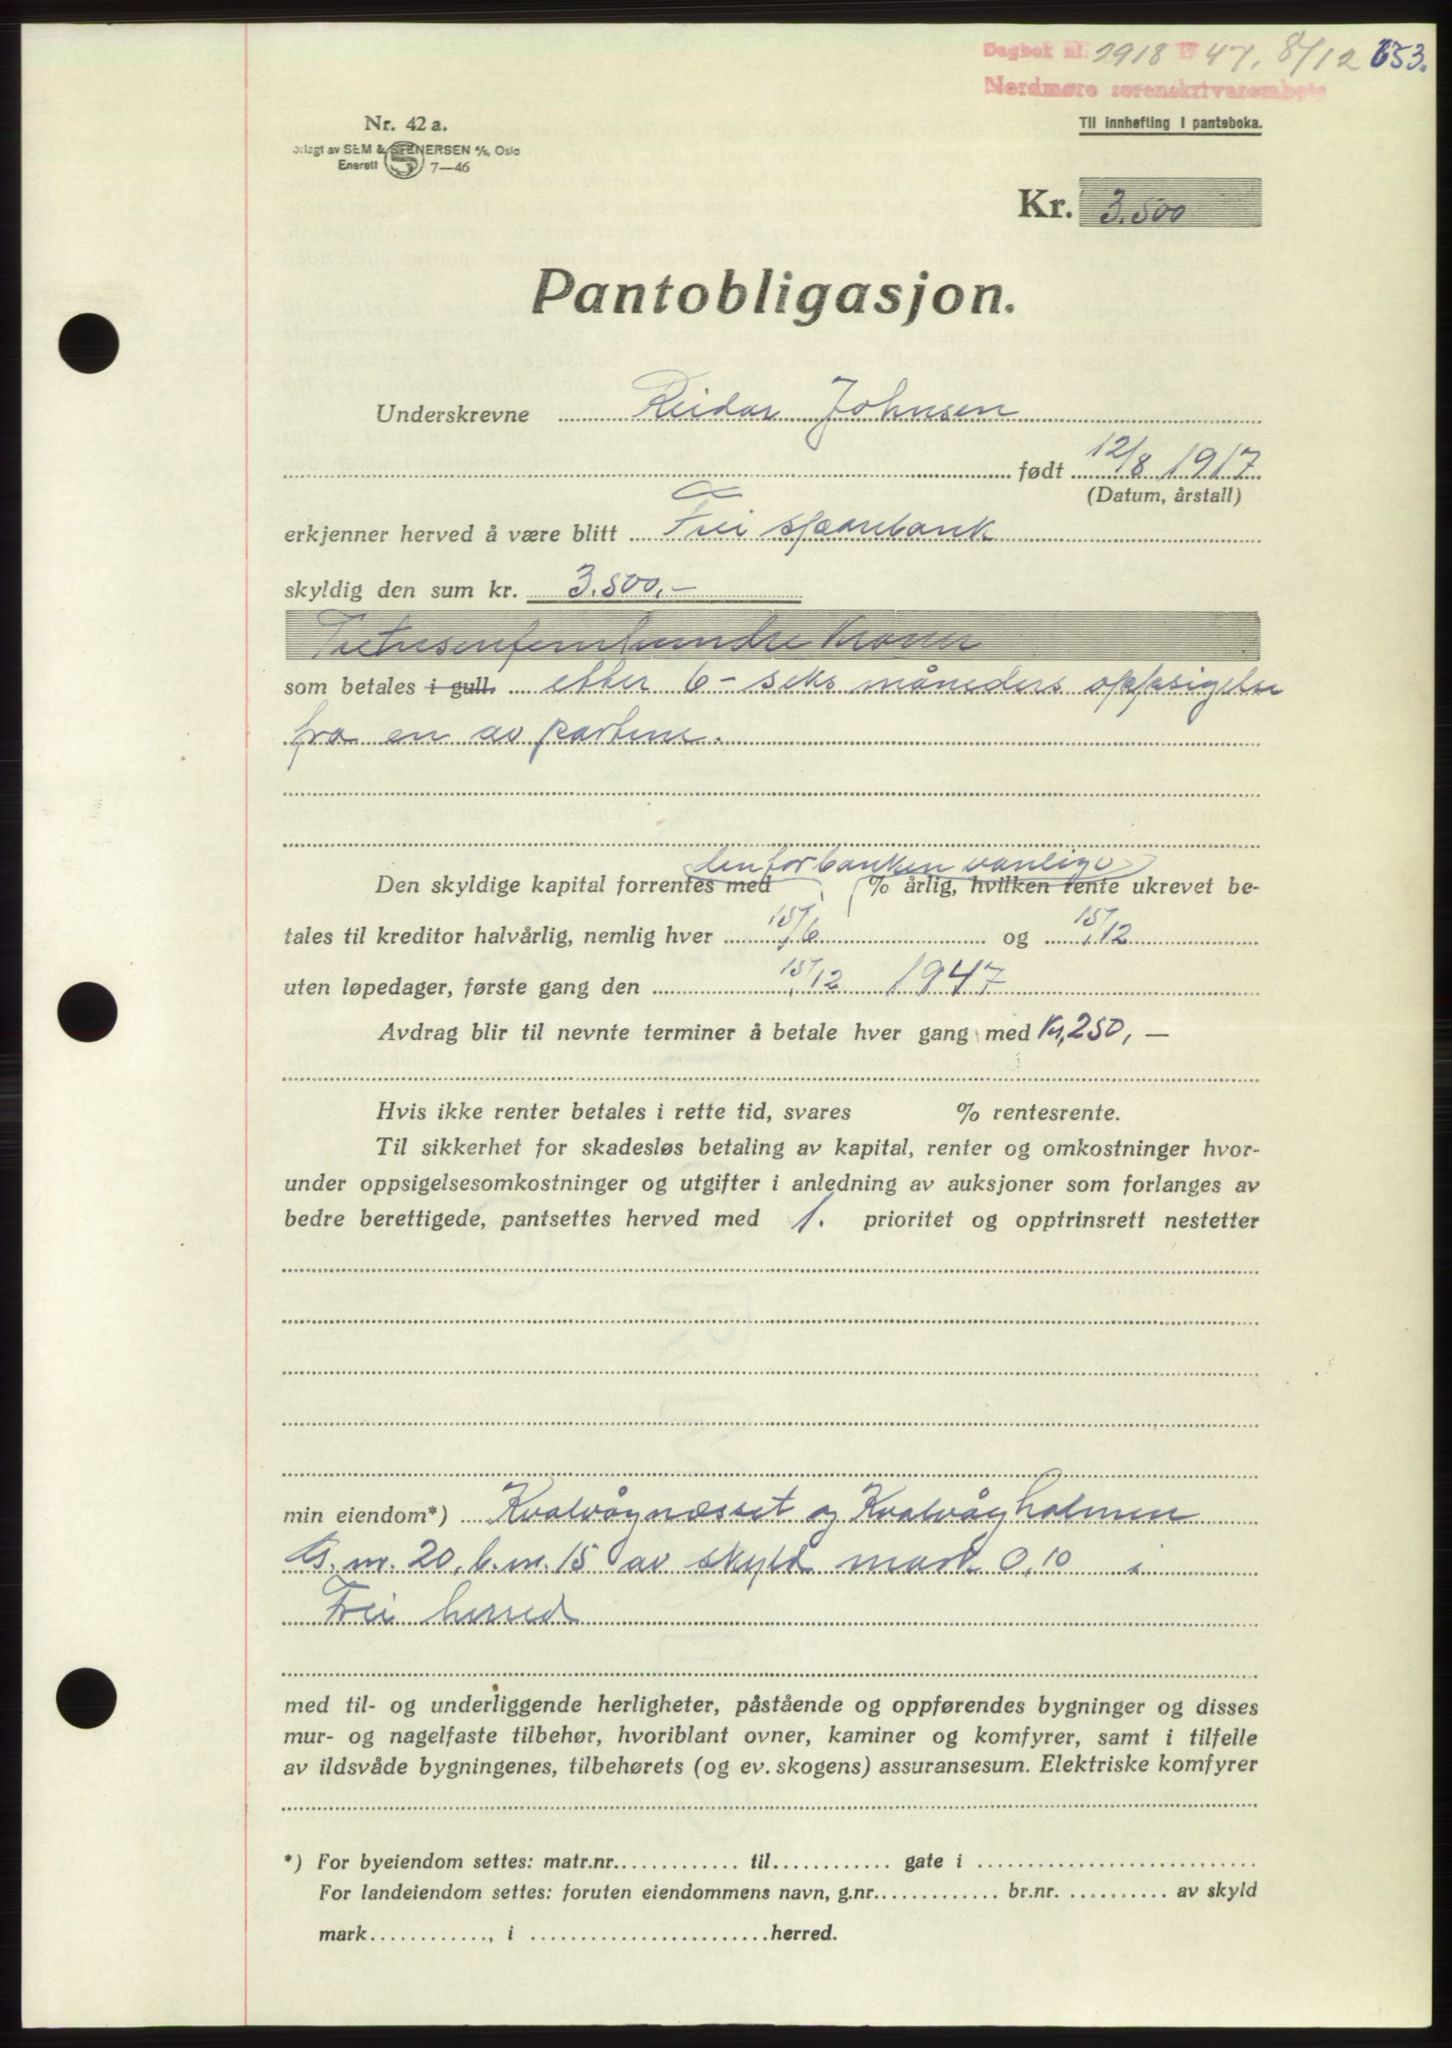 Dagbok nr. 2918 19 47, 8/12 653.
Nordmøre sorenskrivarembete
Nr. 42 a.
Til innhefting i panteboka.
otlagt av SEM & STENERSEN A/S, Oslo
Enerett 7—46
Kr. 3.500
Pantobligasjon.
Underskrevne Reidar Johnsen
født 12/8 1917
(Datum, årstall)
erkjenner herved å være blitt Frei sparebank
skyldig den sum kr. 3.500,-
Tretusenfemhundre kroner
som betales i gull. etter 6 - seks måneders oppsigelse
fra en av partene.
den for banken vanlige
Den skyldige kapital forrentes med % årlig, hvilken rente ukrevet be-
tales til kreditor halvårlig, nemlig hver 15/6 og 15/12
uten løpedager, første gang den 15/12 1947
Avdrag blir til nevnte terminer å betale hver gang med Kr. 250, —
Hvis ikke renter betales i rette tid, svares % rentesrente.
Til sikkerhet for skadesløs betaling av kapital, renter og omkostninger hvor-
under oppsigelsesomkostninger og utgifter i anledning av auksjoner som forlanges av
bedre berettigede, pantsettes herved med 1. prioritet og opptrinsrett nestetter
min eiendom*) Kvalvågnæsset og Kvalvågholmen
G. nr. 20, b. nr. 15 av skyld mark 0,10 i
Frei herred
med til- og underliggende herligheter, påstående og oppførendes bygninger og disses
mur- og nagelfaste tilbehør, hvoriblant ovner, kaminer og komfyrer, samt i tilfelle
av ildsvåde bygningenes, tilbehørets (og ev. skogens) assuransesum. Elektriske komfyrer
*) For byeiendom settes: matr.nr. til gate i
For landeiendom settes: foruten eiendommens navn, g.nr. br.nr. av skyld
mark , i herred.